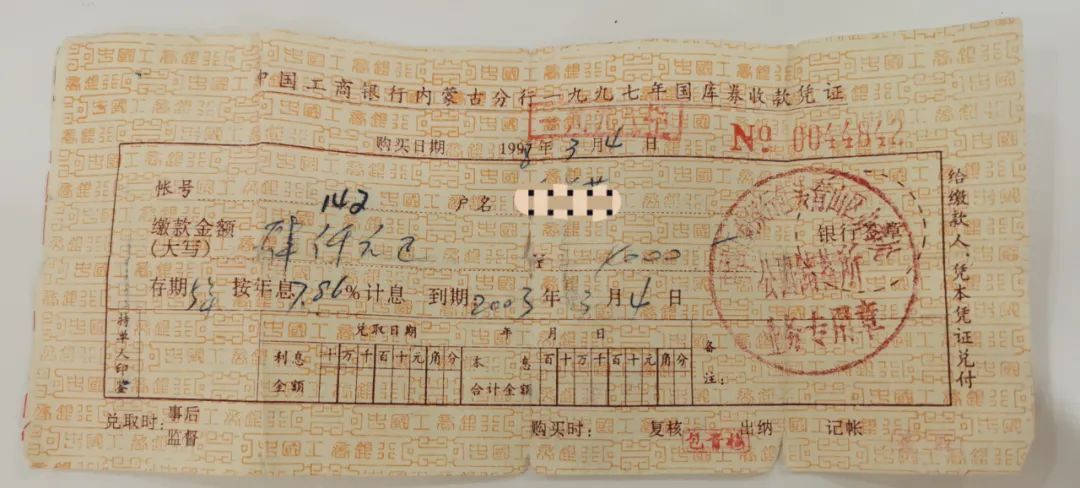 中国工商银行内蒙古分行一九九七年国库券收款凭证
购买日期 1998年3月4日 № 0044842
帐号 142 户名
缴款金额(大写) 肆仟元正 4000
银行签章
业务专用章
存期5年 按年息7.86%计息 到期2003年3月4日
持单人印鉴
兑取日期 年 月 日
利息金额 十万千百十元角分 本息合计金额 百十万千百十元角分
备注:
给缴款人,凭本凭证兑付
兑取时: 事后监督 购买时: 复核 出纳 记帐